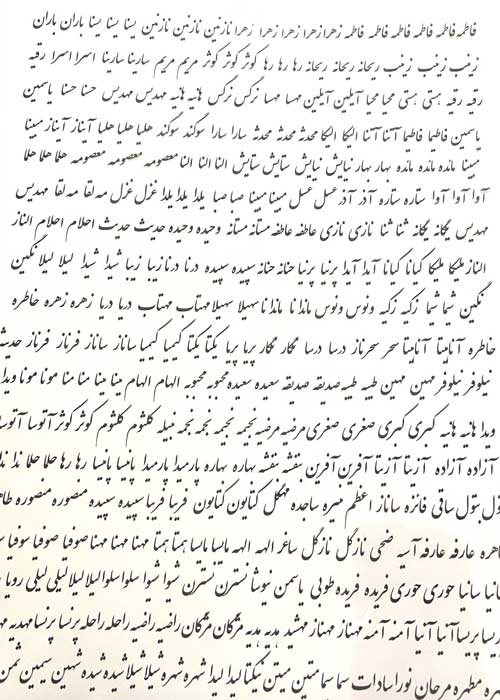 فاطمه فاطمه فاطمه فاطمه فاطمه فاطمه زهرا زهرا زهرا زهرا زهرا نازنین نازنین نازنین نازنین یسنا یسنا یسنا باران باران
زینب زینب زینب ریحانه ریحانه ریحانه رها رها رها کوثر کوثر کوثر مریم مریم سارینا سارینا اسرا اسرا رقیه
رقیه رقیه هستی هستی محیا محیا آیلین آیلین مهسا مهسا نرگس نرگس هانیه هانیه مهدیس مهدیس حسنا حسنا یاسمین
یاسمین فاطیما فاطیما آتنا آتنا الیکا الیکا محدثه محدثه محدثه سارا سارا سوگند سوگند هلیا هلیا هلیا آیناز آیناز مبینا
مبینا مائده مائده مائده بهار بهار نیایش نیایش ستایش ستایش النا النا النا معصومه معصومه معصومه هلما هلما هلما
آوا آوا آوا ستاره ستاره آذر آذر عسل عسل مبینا مبینا صبا صبا یلدا یلدا یلدا غزل غزل مه‌لقا مه‌لقا مهدیس
مهدیس یگانه یگانه ثنا ثنا نازی نازی عاطفه عاطفه مستانه مستانه وحیده وحیده حدیث حدیث احلام احلام الناز
الناز ملیکا ملیکا کیانا کیانا آیدا آیدا پرنیا پرنیا حنانه حنانه سپیده سپیده درنا درنا زیبا زیبا شیدا شیدا لیلا لیلا نگین
نگین شیما شیما زکیه زکیه ونوس ونوس ماندانا ماندانا سهیلا سهیلا مهتاب مهتاب دریا دریا زهره زهره خاطره
خاطره آناهیتا آناهیتا سحر سحر ناز درسا درسا نگار نگار پریا پریا یکتا یکتا کیمیا کیمیا ساناز ساناز فرناز فرناز حدیثه
نیلوفر نیلوفر مهین مهین طیبه طیبه صدیقه صدیقه سعیده سعیده محبوبه محبوبه الهام الهام مینا مینا منا منا مونا مونا ویدا
ویدا هانیه هانیه کبری کبری صغری صغری مرضیه مرضیه نجیمه نجیمه نجمه نجمه نبیله کلثوم کلثوم کوثر کوثر آتوسا آتوسا
آزاده آزاده آزیتا آزیتا آفرین آفرین بنفشه بنفشه بهاره بهاره پارمیدا پارمیدا پانیا پانیا رها رها حلما حلما ندا
بتول ساقی فائزه ساناز اعظم منیره ساجده مهگل کتایون کتایون فریبا فریبا سپیده سپیده منصوره منصوره
عارفه عارفه آسیه ضحی نازگل نازگل ساغر الهه الهه ماسا ماسا همتا همتا مهنا مهنا صوفیا صوفیا سوفیا
سانیا حوری حوری فریده فریده طوبی یاسمن نیوشا نسترن نسترن شیوا شیوا سلوا سلوا لیلا لیلا لیلی لیلی رویا
پریسا آنیا آنیا آمنه آمنه مهناز مهناز مهشید هدیه هدیه مژگان مژگان راضیه راضیه راحله راحله پرسا پرسا مهدیه
مطهره مرجان نورا سادات سما سما متین متین نیکتا لیدا لیدا شهره شهره شیلا شیلا شیده شیده شهین سیمین ثمین